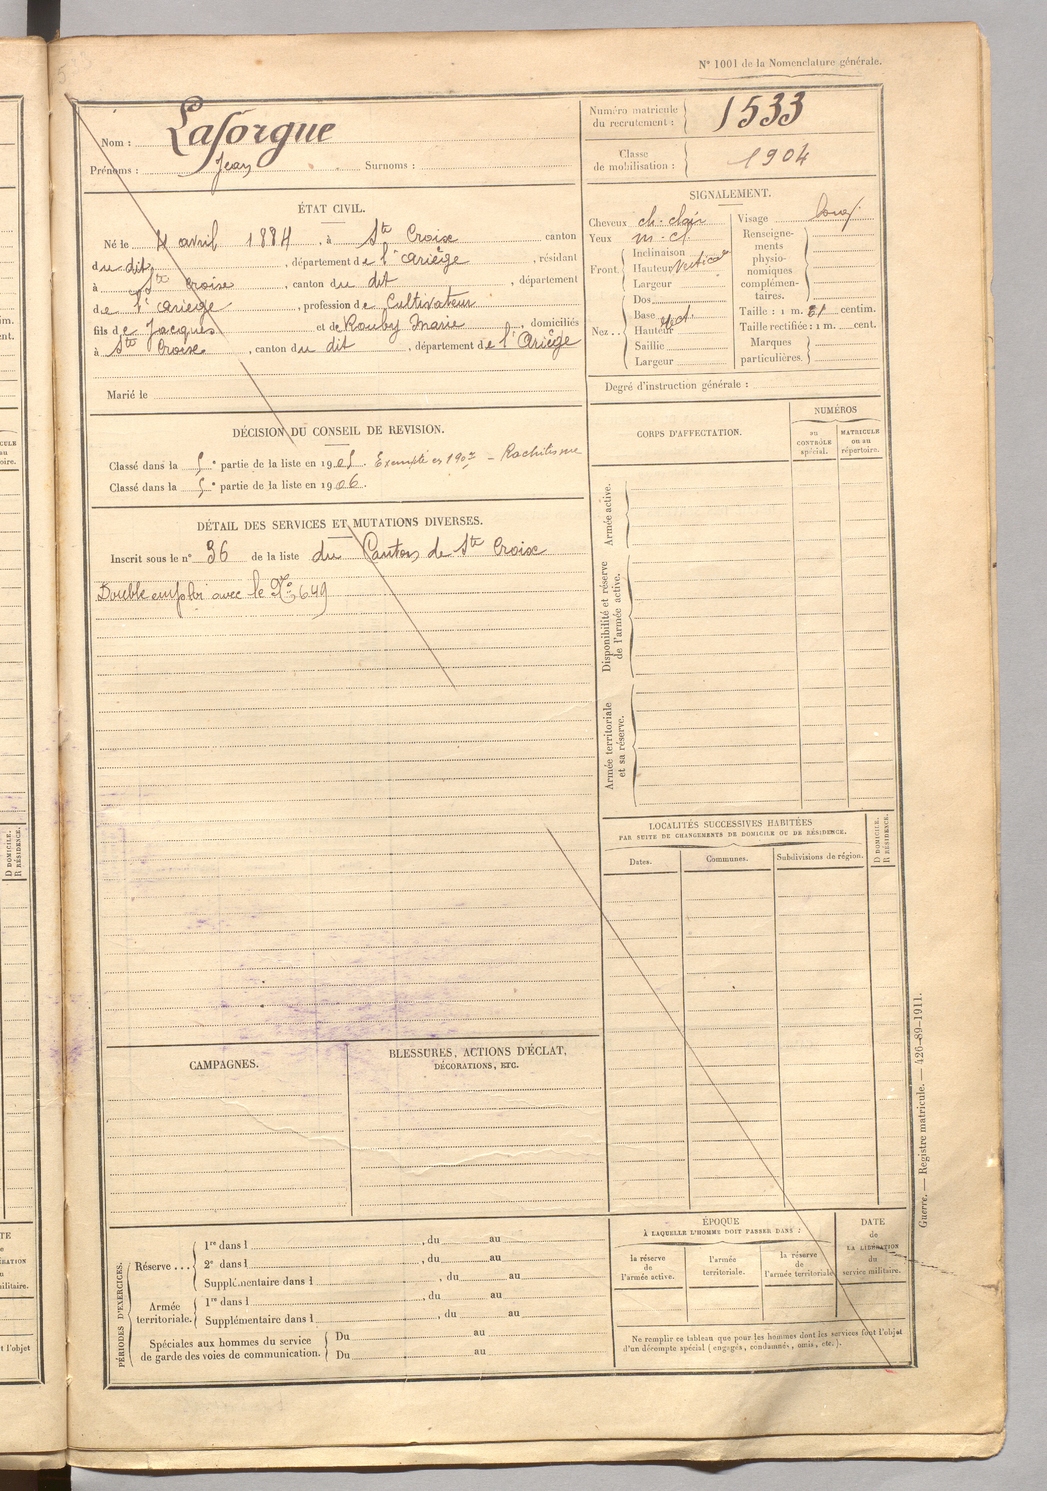 N° 1001 de la Nomenclature générale.
Nom : Laforgue
Prénoms : Jean Surnoms :
Numéro matricule du recrutement : 1533
Classe de mobilisation : 1904
ÉTAT CIVIL.
Né le 4 avril 1884, à Ste Croix canton
du dit, département de l'Ariège, résidant
à Ste Croix, canton du dit, département
de l'Ariège, profession de Cultivateur
fils de Jacques et de Rouby Marie, domiciliés
à Ste Croix, canton du dit, département de l'Ariège
Marié le
SIGNALEMENT.
Cheveux ch. clair
Yeux m. cl.
Front. Inclinaison
Hauteur Vertical
Largeur
Nez.. Dos
Base
Hauteur
Saillie
Largeur
Visage long.
Renseignements physionomiques complémentaires.
Taille : 1 m. 51 centim.
Taille rectifiée : 1 m. cent.
Marques particulières.
Degré d'instruction générale :
DÉCISION DU CONSEIL DE REVISION.
Classé dans la 5e partie de la liste en 1905. Exempté en 1905 - Rachitisme
Classé dans la 5e partie de la liste en 1906.
DÉTAIL DES SERVICES ET MUTATIONS DIVERSES.
Inscrit sous le n° 36 de la liste du Canton de Ste Croix
Double emploi avec le No 649
CORPS D'AFFECTATION.
NUMÉROS
au CONTRÔLE spécial.
MATRICULE ou au répertoire.
Armée active.
Disponibilité et réserve de l'armée active.
Armée territoriale et sa réserve.
LOCALITÉS SUCCESSIVES HABITÉES
PAR SUITE DE CHANGEMENTS DE DOMICILE OU DE RÉSIDENCE.
Dates.
Communes.
Subdivisions de région.
D DOMICILE.
R RÉSIDENCE.
CAMPAGNES.
BLESSURES, ACTIONS D'ÉCLAT,
DÉCORATIONS, ETC.
PÉRIODES D'EXERCICES.
Réserve... 1re dans l , du au
2e dans l , du au
Supplémentaire dans l , du au
Armée territoriale. 1re dans l , du au
Supplémentaire dans l , du au
Spéciales aux hommes du service
de garde des voies de communication. Du au
Du au
ÉPOQUE
À LAQUELLE L'HOMME DOIT PASSER DANS :
la réserve de l'armée active.
l'armée territoriale.
la réserve de l'armée territoriale
DATE de LA LIBÉRATION du service militaire.
Ne remplir ce tableau que pour les hommes dont les services font l'objet
d'un décompte spécial (engagés, condamnés, omis, etc.).
Guerre. — Registre matricule. — 426-89-1911.